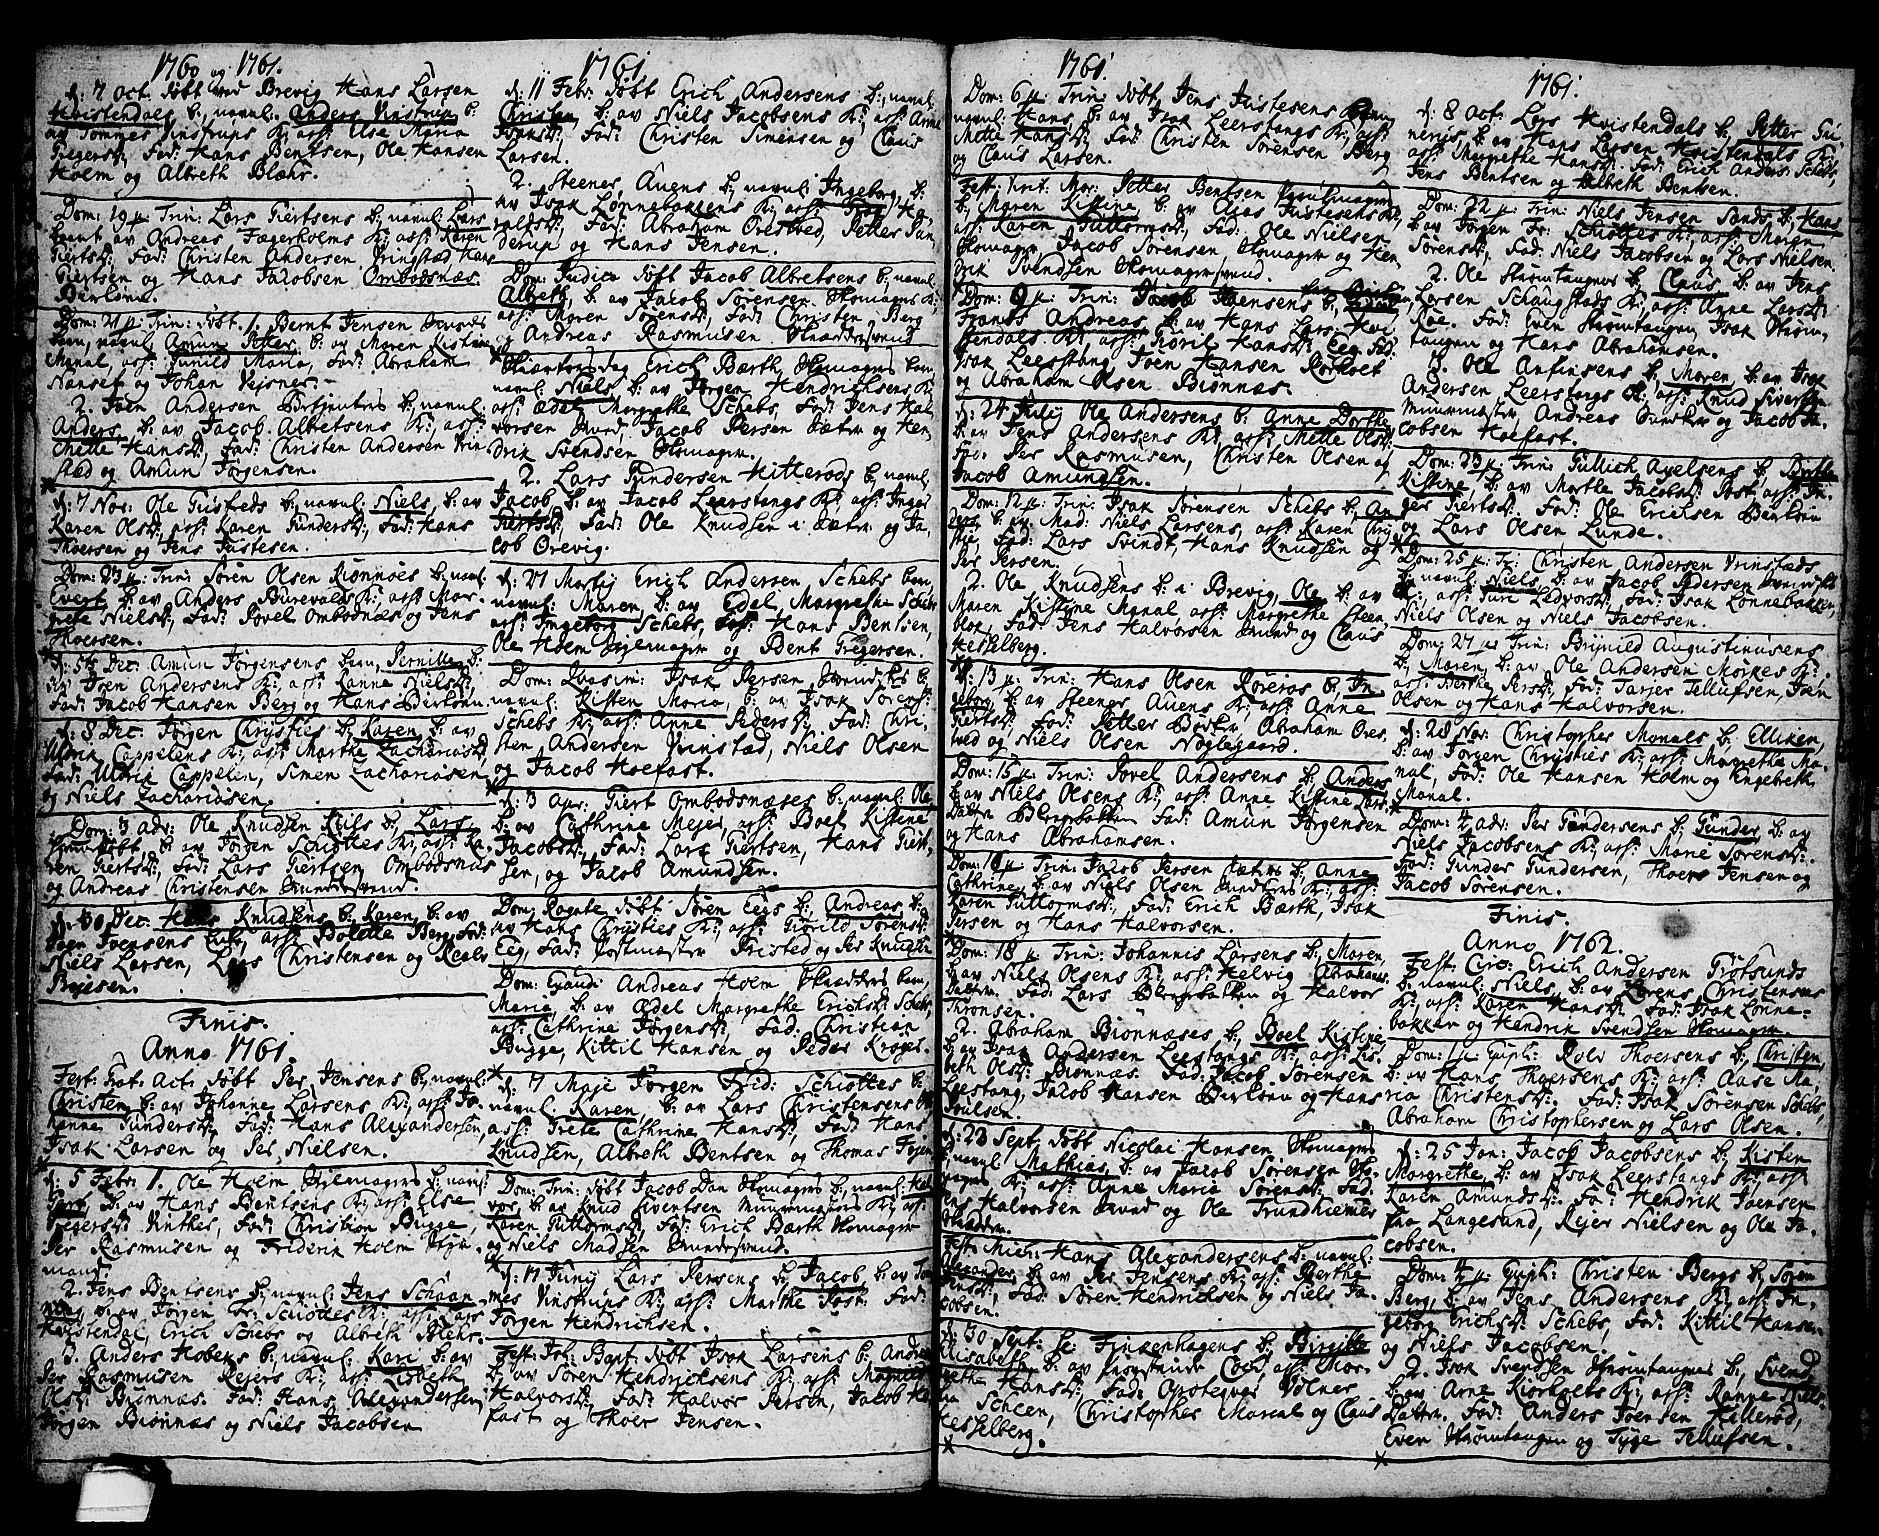 1760 og 1761.
d: 7 Oct. døbt ved Brevig Hans Larsen
Hvistendals b:, navnl. Anders Vinstrup b:
av Tommes Vinstrups K: ass: Else Maria
Gregersd:, Fad: Hans Bentsen, Ole Hansen
Holm og Albreth Blæhr.
Dom: 19 p. Trin: Lars Giertsens b: navnl: Lars
baaret av Andreas Fægerholms K: ass: Karen
Giertsd: Fad: Christen Andersen Vrinstad Hans
Giertsen og Hans Jacobsen Ombodsnæs
Dom: 21 p. Trin: døbt. 1. Bernt Jensen
navnl: Amun Petter b: av Maren Kistine
Monal, ass: Gunild Maria, Fad: Abraham
Hansen og Johan
2. Joen Andersen b: navnl:
Anders, b: av Jacob Albretsens K: ass:
Mette Hansd:, Fad: Christen Andersen Vrin-
stad og Amun Jørgensen.
d: 7 Nov: Ole Gusfreds b: navnl: Niels, b: av
Karen Olsd:, ass: Karen Gundersd:, Fad: Hans
Thoersen og Jens Justesen.
Dom: 23 p. Trin: Søren Olsen Rønnæs b: navnl:
Evert b: av Anders Burevalds K: ass: Mar-
grete Nielsd:, Fad: Povel Ombodsnæs og Jens
Thoersen.
d: 5te Dec: Amun Jørgensens barn, Pernille b:
av Joen Andersens K: ass: Kanne Nielsd:,
Fad: Jacob Hansen Berg og Hans
d: 8 Dec: Jørgen Christies b: Karen b: av
Ulrik Cappelens K: ass: Marthe Zachariasd:
Fad: Ulrik Cappelen, Simen Zachariasen
og Niels Zachariasen.
Dom: 3 adv: Ole Knudsen b:, Lars
døbt b: av Jørgen Schiøttes K: ass: Ka-
ren Giertsd:, Fad: Lars Giertsen Ombodsnæs
og Andreas Christensen
d: 30 Dec: Hans Knudsens b: Karen b: av
Joensens ass: Bolette Berg Fad:
Niels Larsen, Lars Christensen og
Bojesen.
Finis.
Anno 1761.
Fest: Nat. Act. døbt Per Jensens b: navnl:
Christen b: av Johanne Larsens K: ass: Jo-
hanne Gundersd:, Fad: Hans Alexandersen,
Isak Larsen og Per Nielsen.
d: 5 Febr: 1. Ole Holm b: navnl:
b: av Hans Bentsens K: ass: Else
Gregersd: Vinthes, Fad: Christian Bugge,
Per Rasmusen og Friderik Holm
2. Jens Bentsens b: navnl: Jens Schaan-
ning b: av Jørgen Fr: Schiøttes K: ass: Lars
Hvistendal, Erich Schebs og Albreth Blehr.
3. Anders Hobeks b: navnl: Kari b: av
Per Rasmusen Rejers K: ass: Lisbeth
Olsd: Biønnæs. Fad: Hans Alexandersen,
Jørgen Biønnæs og Niels Jacobsen
1761
d: 11 Febr: døbt Erich Andersens b:, navnl:
Christen, b: av Niels Jacobsens K: ass: Anne
Isaksd:, Fad: Christen Simensen og Claus
Larsen.
2. Steener Auens b: navnl: Ingeborg, b:
av Isak Lønnebakkens K: ass: Ha-
ralfsd:, Fad: Abraham Oresved, Petter Gun-
derup og Hans Jensen.
Dom: Judica døbt Jacob Albretsens b: navnl:
Albreth, b: av Jacob Sørensen Skomagers K:
ass: Maren Sørensd:, Fad: Christen Berg
Andreas Rasmusen
Skiærtorsdag Erich Barth, Skomagers barn,
navnl: Niels, b: av Jørgen Hendrichsens K:
ass: Ædel Margrethe Schebs, Fad: Jens Hal-
vorsen Lund, Jacob Persen Sætre og Hen-
drik Svendsen Skomager.
2. Lars Gundersen Hitterøds b; navnl:
Jacob b: av Jacob Leerstangs K: ass: Inger
Giertsd:, Fad: Ole Knudsen i Sætre og Ja-
cob Ørevig.
d: 21 Martij Erich Andersen Schebs barn,
navnl: Maren, b: av Edel Margrethe Schebs
ass: Ingeborg Schebs, Fad: Hans Bentsen,
Ole Holm og Bent Gregersen.
Dom: Quasim: Isak Persen b:
navnl: Kisten Maria, b: av Isak Sørens:
Schebs K: ass: Anne Pedersd: Fad: Chri-
sten Andersen Vrinstad, Niels Olsen
og Jacob Hoefast.
d: 3 Apr: Giert Ombodsnæses b: navnl: Ole
b: av Cathrine Mejer, ass: Boel Kistine
Jacobsd: Fad: Lars Giertsen, Hans Giert-
sen, og Jacob Amundsen.
Dom: Rogate døbt Søren Eegs b: Andreas b:
av Hans Christies K: ass: Giorild Sørensd:
Eeg, Fad: Postmester Pristed og Per Knudsen
Dom: Exaudi Andreas Holm barn,
Marie b: av Ædel Margrethe Erichsd: Schebs,
ass: Cathrine Jørgensd: Fad: Christian
Bugge, Kittil Hansen og Peder Kroges.
d: 7 Maji Jørgen Frid: Schiøttes b:
navnl: Karen, b: av Lars Christensens K:
ass: Grete Cathrine Hansd:, Fad: Hans
Knudsen, Albreth Bentsen og Thomas
Dom: Trin: døbt Jacob Dan Skomagers b:, navnl: Hal-
vor, b: av Knud Siversen Muurmesters K: ass:
Karen Guttormsd:, Fad: Erich Barth Skomager
og Niels Madsen
d: 11 Junij Lars Persens b: Jacob b: av Tom-
mes Vinstrups K: ass: Marthe Post. Fad:
Jørgen Hendrichsen.
Fest: Joh: Bapt: døbt Isak Larsens b: Andreas
b: av Søren Hendricksens K: ass: Magnild
Halvorsd:, Fad: Halvor Persen, Jacob Hoe-
fast og Thoer Jensen.
1761
Dom: 6 p. Trin: døbt, Jens Justesens barn
navnl: Hans b: av Isak Leerstangs K: ass:
Mette Hansd:, Fad: Christen Sørensen Berg
og Claus Larsen.
Fest: Visit. Mar: Petter Bentsen
b:, Maren Kistine, b: av Claus Justesens K:
ass: Karen Guttormsd: Fad: Ole Nielsen
Skomager Jacob Sørensen Skomager og Hen-
drik Svendsen Skomagersvend.
Dom: 9 p. Trin: Jacob Hansens b:,
Frands Andreas b: av Hans Lars: Hvi-
stendals K: ass: Tioril Hansd: Eeg, Fad:
Isak Leerstang Joen Hansen Rørholt
og Abraham Olsen Biønnæs.
d: 24 Julij Ole Andersens b: Anne Dorthe
b: av Jens Andersens K: ass: Mette Olsd:
Fad: Per Rasmusen, Christen Olsen og
Jacob Amundsen.
Dom: 12 p. Trin: Isak Sørensen Schebs b: An-
ders b: av Mad: Niels Larsens, ass: Karen Chri-
stie, Fad: Lars Svindt, Hans Knudsen og
Per Persen.
2. Ole Knudsens b: i Brevig, Ole b: av
Maren Kistine Monal, ass: Margrethe Steen-
blok, Fad: Jens Halvorsen Lund og Claus
Hesselberg.
d: 13 p. Trin: Hans Olsen Røreros b: In-
geborg b: av Steener Auens K: ass: Anne
Giertsd: Fad: Petter Abraham Ores-
tved og Niels Olsen Noglegaard.
Dom: 15 p. Trin: Povel Andersens b: Anders
b: av Niels Olsens K: ass: Anne Kistine Lars-
Datter Bergsbakken Fad: Amun Jørgensen
og Hans Abrahamsen.
Dom: 16 p. Trin: Jacob Persen Sætres b: Anne
Cathrine, b: av Niels Olsen K: ass:
Karen Guttormsd:, Fad: Erich Barth, Isak
Persen og Hans Halvorsen.
Dom: 18 p. Trin: Johannis Larsens b:, Maren,
b: av Niels Olsens K: ass: Helvig Abrahams
Datter. Fad: Lars Bergsbakken og Halvor
Thronsen.
2. Abraham Biønnæses b: Boel Kistine
b: av Isak Andersen Leerstangs K: ass: Lis-
beth Olsd: Biønnæs. Fad: Jacob Sørensen
Leerstang, Jacob Hansen og Hans
Poulsen.
d: 23 Sept. døbt Nicolai Hansen Skomagers
b: navnl: Mathias b: av Jacob Sørensen Sko-
magers K: ass: Anne Maria Sørensd: Fad:
Jens Halvorsen Lund og Ole Trundhiemer
Skredder.
Fest: Mich: Hans Alexandersens b: navnl:
Alexander, b: av Per Jensens K: ass: Berthe
Jensd:, Fad: Søren Hendrichsen og Niels Ja-
cobsen.
d: 30 Sept: Hr Finkenhagens b: Birgitte
Elisabeth b: av Provstinde Coch, ass: Mar-
grethe Hansd: Fad: Apoteqver Völner
fra Scheen, Christopher Monal og Claus
Hesselberg.
1761:
d: 8 Oct. Lars Hvistendals b: Petter Gu-
nerius b: av Hans Larsen Hvistendals K:
ass: Margrethe Hansd: Fad: Erich Anders: Schebs,
Jens Bentsen og Albeth Bentsen.
Dom: 22 p. Trin: Niels Jensen Sands b: Hans
b: av Jørgen Fr: Schiøttes K: ass: Maren
Sørensd:, Fad: Niels Jacobsen og Lars Nielsen.
2. Ole Strømtangens b: Claus b: av Jens
Larsen Schougstads K: ass: Anne Larsd:
Røe. Fad: Even Strømtangen, Isak Strøm-
tangen og Hans Abrahamsen.
3. Ole Anfinsens b: Maren b: av Isak
Andersen Leerstangs K: ass: Knud Siversen
Muurmester Andreas og Jacob Ja-
cobsen Hoefast.
Dom: 23 p. Trin: Tullich Axelsens b:
Kistine b: av Marthe Jacobsd: Post, ass: In-
ger Giertsd: Fad: Ole Erichsen
og Lars Olsen Lunde.
Dom: 25 p. Tr: Christen Andersen Vrinstads
b: navnl: Niels, b: av Jacob Pedersen
K:, ass: Guri Ledvorsd:, Fad: Isak Lønnebakken,
Niels Olsen og Niels Jacobsen.
Dom: 27 p. Trin: Brynild Augustinusens
b: Maren, b: av Ole Andersen Mørkes K:
ass: Berthe Persd:, Fad: Tarjer Tellufsen, Joen
Olsen og Hans Halvorsen.
d: 28 Nov: Christopher Monals b: Elliken,
b: av Jørgen Christies K: ass: Margrethe Mo-
nal, Fad: Ole Hansen Holm og Engebreth
Monal.
Dom: 4 adv: Per Gundersens b: Gunder b: av
Niels Jacobsens K: ass: Marie Sørensd:
Fad: Gunder Gundersen, Thoer Jensen og
Jacob Sørensen.
Finis.
Anno 1762.
Fest: Circ: Erich Andersen Trotsunds
b: navnl: Niels, b: av Lorens Christensens
K: ass: Karen Hansd: Fad: Isak Lønne-
bakken og Hendrik Svendsen Skomager.
Dom: 1 p. Epiph: Rolv Thoersens b: Christen
b: av Hans Thoersens K: ass: Aase Ma-
ria Christensd: Fad: Isak Sørensen Schebs,
Abraham Christophersen og Lars Olsen.
d: 25 Jan: Jacob Jacobsens b: Kisten
Margrethe, b: av Isak Leerstangs K: ass:
Karen Amundsd: Fad: Hendrik Joensen
fra Langesund, Rejer Nielsen og Ole Ja-
cobsen.
Dom: 4 p. Epiph: Christen Bergs b: Søren
Berg, b: av Jens Andersens K: ass: In-
geborg Erichsd: Schebs, Fad: Kittil Hansen
og Niels Jacobsen.
2. Isak Svendsen Strømtangens b: Svend
b: av Arne Kiørholts K: ass: Kanne Niels-
Datter. Fad: Anders Joensen Hitterød,
Even Strømtangen og Tyge Tellufsen.